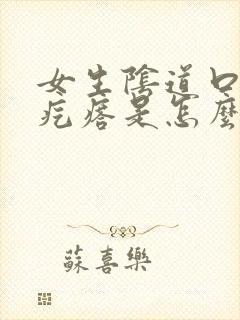 女生陰道口
疙瘩是怎麼
蘇喜樂